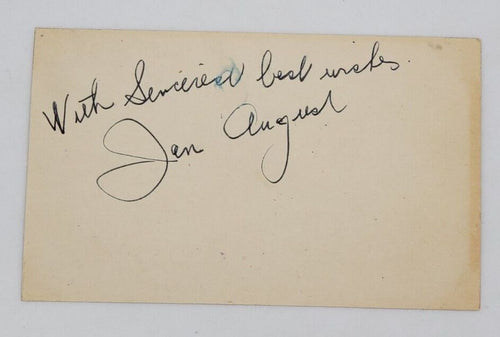 With Sincerest best wishes.
Jan August